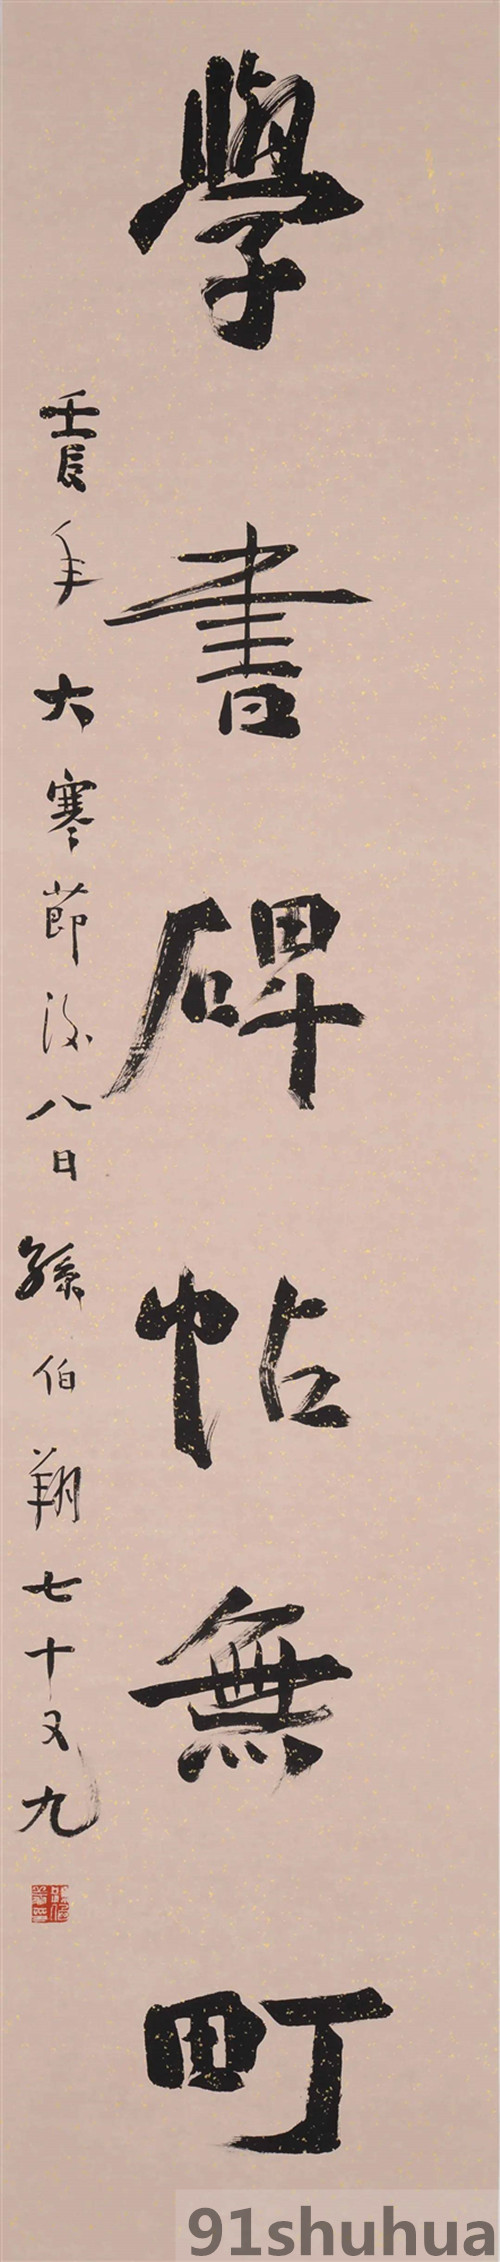 學書碑帖無町
壬辰年大寒節後八日孫伯翔七十又九
91shuhua